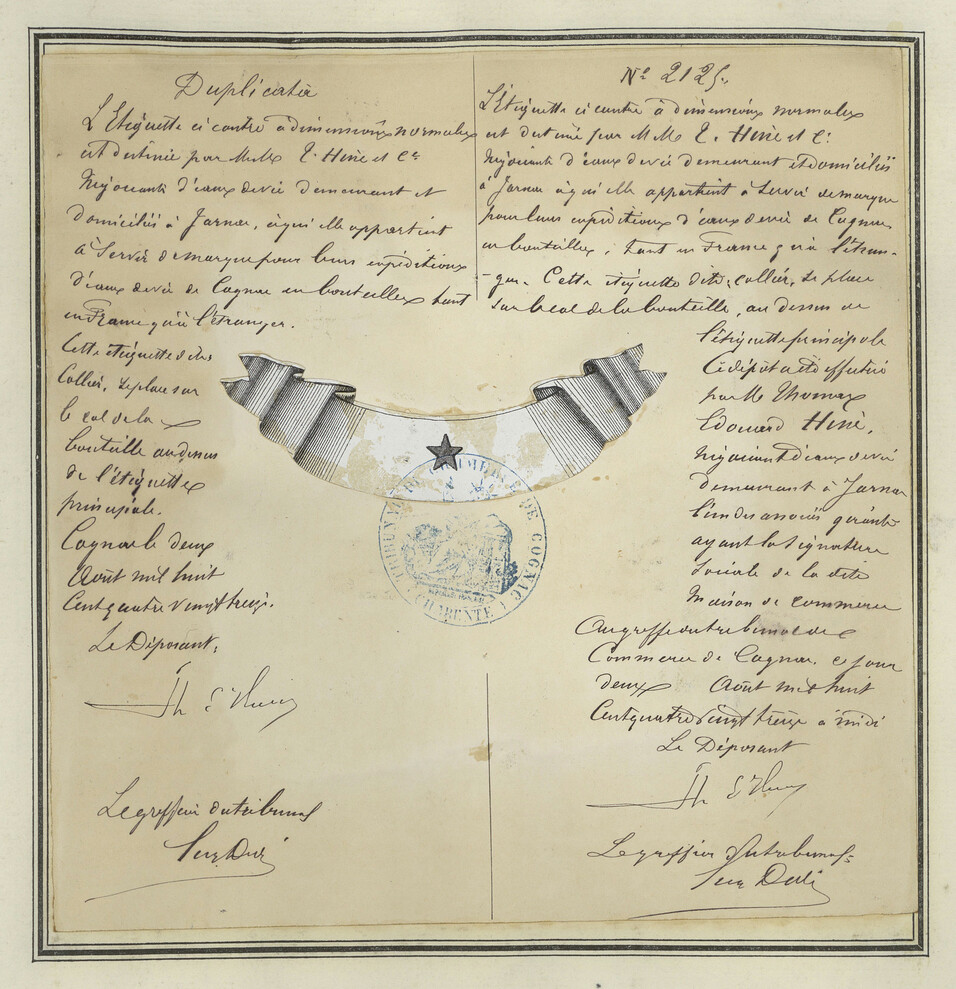 Duplicata
L'Etiquette ci contre à dimensions normales
est destinée par M.M. T. Hine et Cie
Négociants d'eaux de vie demeurant et
domiciliés à Jarnac, à qui elle appartient
à Servir de marque pour leurs expéditions
d'eaux de vie de Cognac en bouteilles tant
en France qu'à l'étranger.
Cette étiquette dite
Collier, se place sur
le col de la
bouteille au dessus
de l'étiquette
principale.
Cognac le deux
Août mil huit
Cent quatre vingt treize.
Le Déposant,
Th E Hine
Le greffier du tribunal
Nº 2125.
L'Etiquette ci contre à dimensions normales
est destinée par M M T. Hine et Cie
Négociants d'eaux de vie demeurant et domiciliés
à Jarnac à qui elle appartient à Servir de marque
pour leurs expéditions d'eaux de vie de Cognac
en bouteilles, tant en France qu'à l'étran-
-ger. Cette étiquette dite, collier, se place
sur le col de la bouteille, au dessus de
l'étiquette principale
Ce dépôt a été effectué
par M. Thomas
Edouard Hine,
Négociant d'eaux de vie
demeurant à Jarnac
l'un des associés gérants
ayant la signature
sociale de la dite
maison de commerce
Au greffe du tribunal de
Commerce de Cognac, ce jour
deux Août mil huit
Cent quatre vingt treize à midi
Le Déposant
Th E Hine
Le greffier du tribunal
TRIBUNAL DE COMMERCE DE COGNAC
CHARENTE